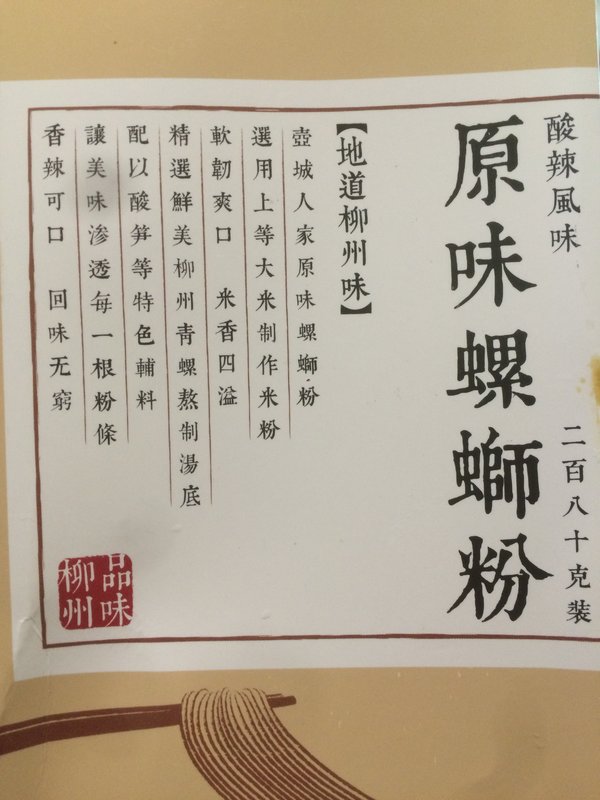 酸辣風味
原味螺螄粉
二百八十克裝
【地道柳州味】
壺城人家原味螺螄·粉
選用上等大米制作米粉
軟韌爽口 米香四溢
精選鮮美柳州青螺熬制湯底
配以酸笋等特色輔料
讓美味渗透每一根粉條
香辣可口 回味无窮
品味
柳州